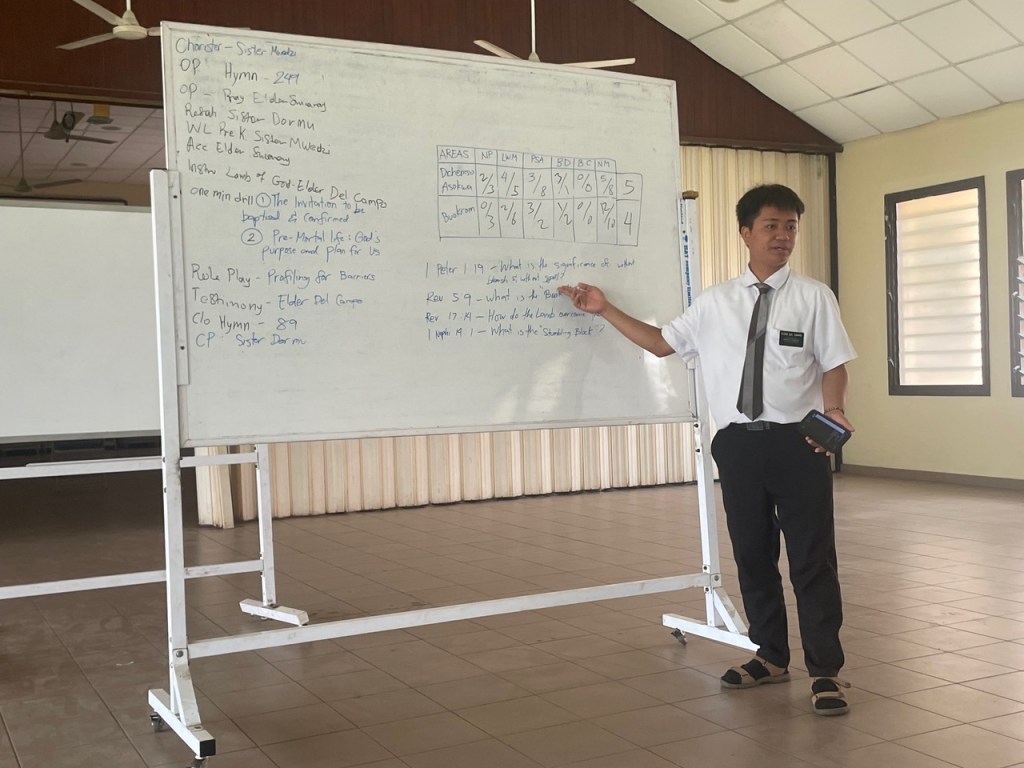 Chorister - Sister Mwedzi
OP Hymn - 249
OP - Pray Elder Swaray
Rehab Sister Dormu
WL Pre K Sister Mwedzi
Acc Elder Swaray
Instr Lamb of God - Elder Del Campo
one min drill ① The Invitation to be
baptised & Confirmed
② Pre-Mortal life: God's
purpose and plan for Us
Role Play - Profiling for Barriers
Testimony - Elder Del Campo
Clo Hymn - 89
CP - Sister Dormu
AREAS NP LWM PSA BD BC NM
2/3 4/5 3/8 3/1 0/0 5/8 5
Asokwa
Buobram 0/3 2/6 3/2 1/2 0/0 12/10 4
1 Peter 1 19 - What is the significance of what
Rev 5 9 - What is the "Book"
Rev 17 14 - How do the Lamb overcome
1 Neph 14 1 - What is the "Stumbling Block"?